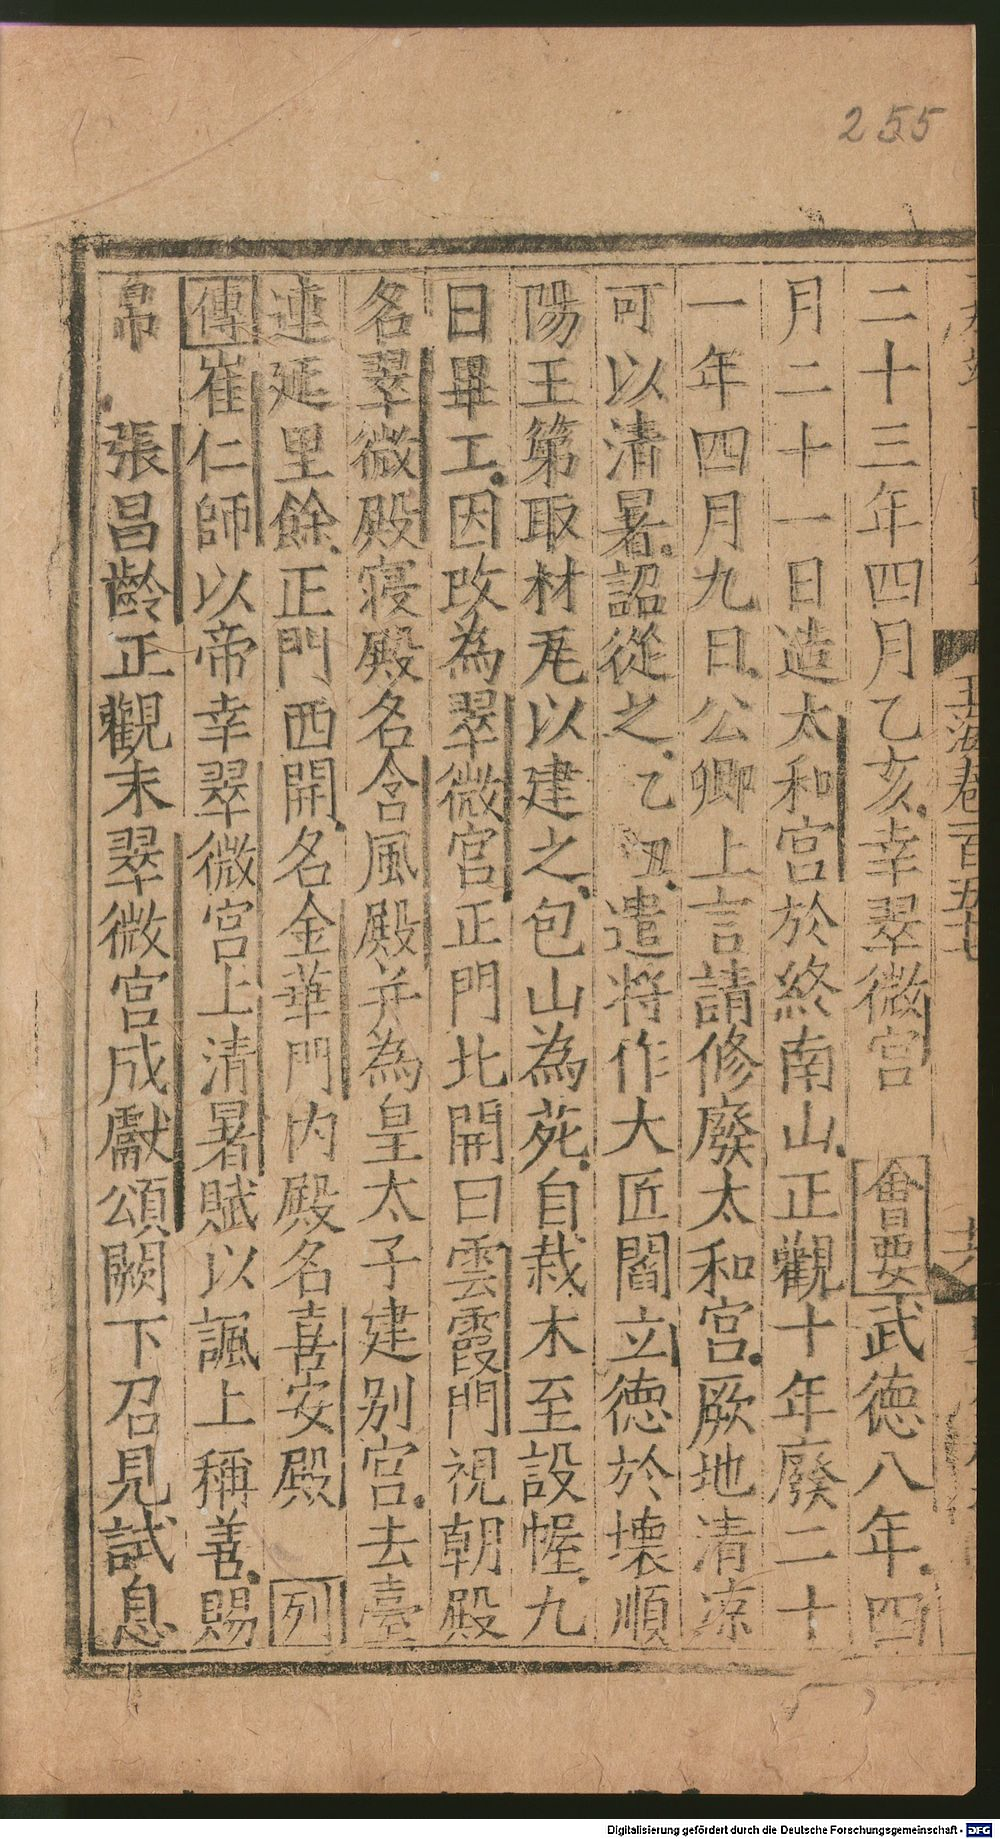 255
玉海卷一百五十七
二十三年四月乙亥幸翠微宮 會要武德八年四
月二十一日造太和宮於終南山正觀十年廢二十
一年四月九日公卿上言請修廢太和宮厥地清凉
可以清暑詔從之乙丑遣將作大匠閻立德於壞順
陽王第取材瓦以建之包山為苑自栽木至設幄九
日畢工因改為翠微宮正門北開曰雲霞門視朝殿
名翠微殿寝殿名含風殿并為皇太子建别宮去臺
連延里餘正門西開名金華門内殿名喜安殿 列
傳崔仁師以帝幸翠微宮上清暑賦以諷上稱善賜
帛 張昌齡正觀末翠微宮成獻頌闕下召見試息
Digitalisierung gefördert durch die Deutsche Forschungsgemeinschaft - DFG